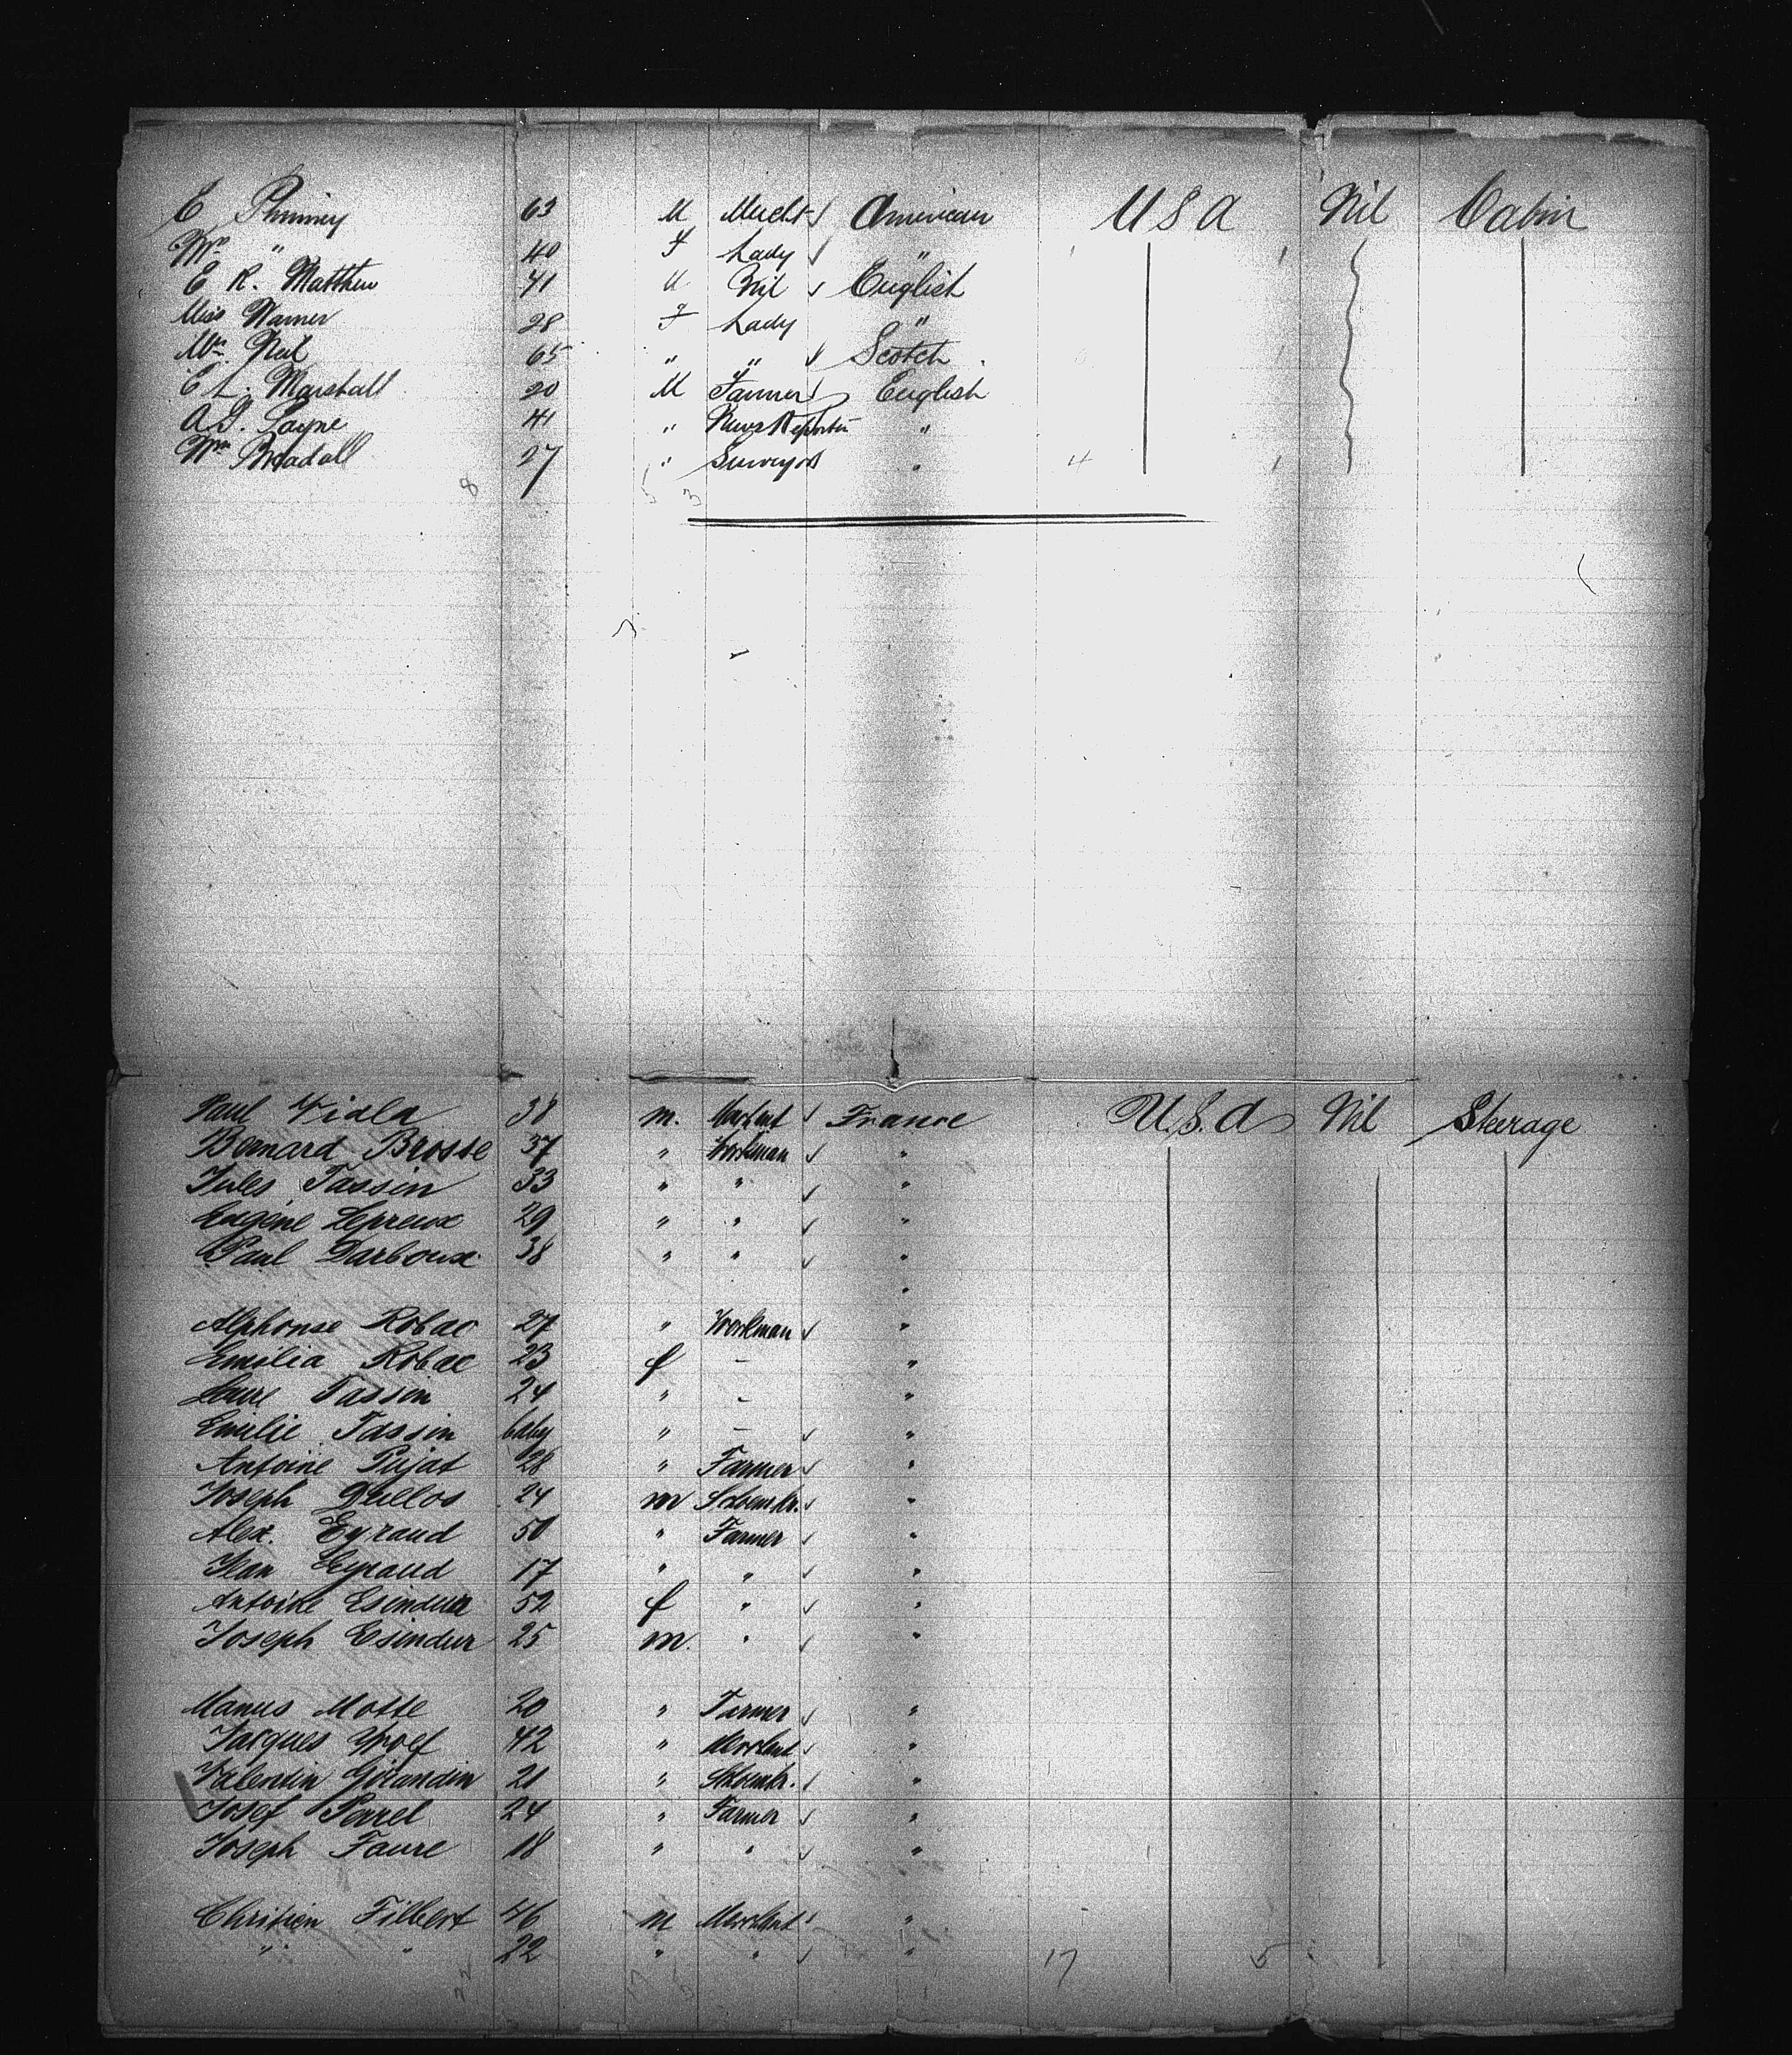 E Phinney 63 M Mercht American U S A Nil Cabin
Mrs " 40 F Lady "
E R. Matthew 41 M Nil English
Miss Warner 28 F Lady "
Mrs. Neil 65 " " Scotch
E L. Marshall 20 M Farmer English
A J. Payne 41 " News Reporter "
Wm 27 " Surveyor " 4
8 5 3
Paul Viala 38 m. Merchant France U.S.A Nil Steerage
Bernard Brosse 37 " Workman "
Jules Tassin 33 " " "
Eugène Lepreux 29 " " "
Paul Darboux 38 " " "
"
Alphonse Robac 27 " Workman "
Emilia Robac 23 f - "
Laure Tassin 24 " - "
Emilie Tassin baby " - "
Antoine Pujat 28 " Farmer "
Joseph 24 m Shoemkr. "
Alex. Eyraud 50 " Farmer "
Jean Eyraud 17 " " "
Antoine 52 f " "
Joseph Esindur 25 m. " "
Motte 20 " Farmer "
Jacques 42 " Merchant "
Valentin Girandin 21 " Shoemkr. "
Josef Perrel 24 " Farmer "
Joseph Faure 18 " " "
Christien Filbert 46 m Merchant "
" " 22 " " " 17 5
22 17 5